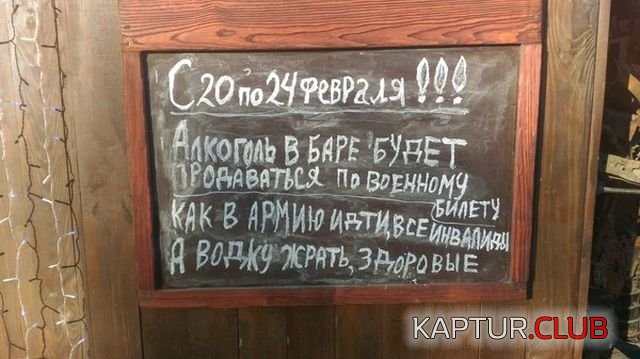 С 20 по 24 февраля!!!
Алкоголь в баре будет
продаваться по военному
билету
как в армию идти, все инвалиды
а воджу жрать, здоровые
KAPTUR.CLUB